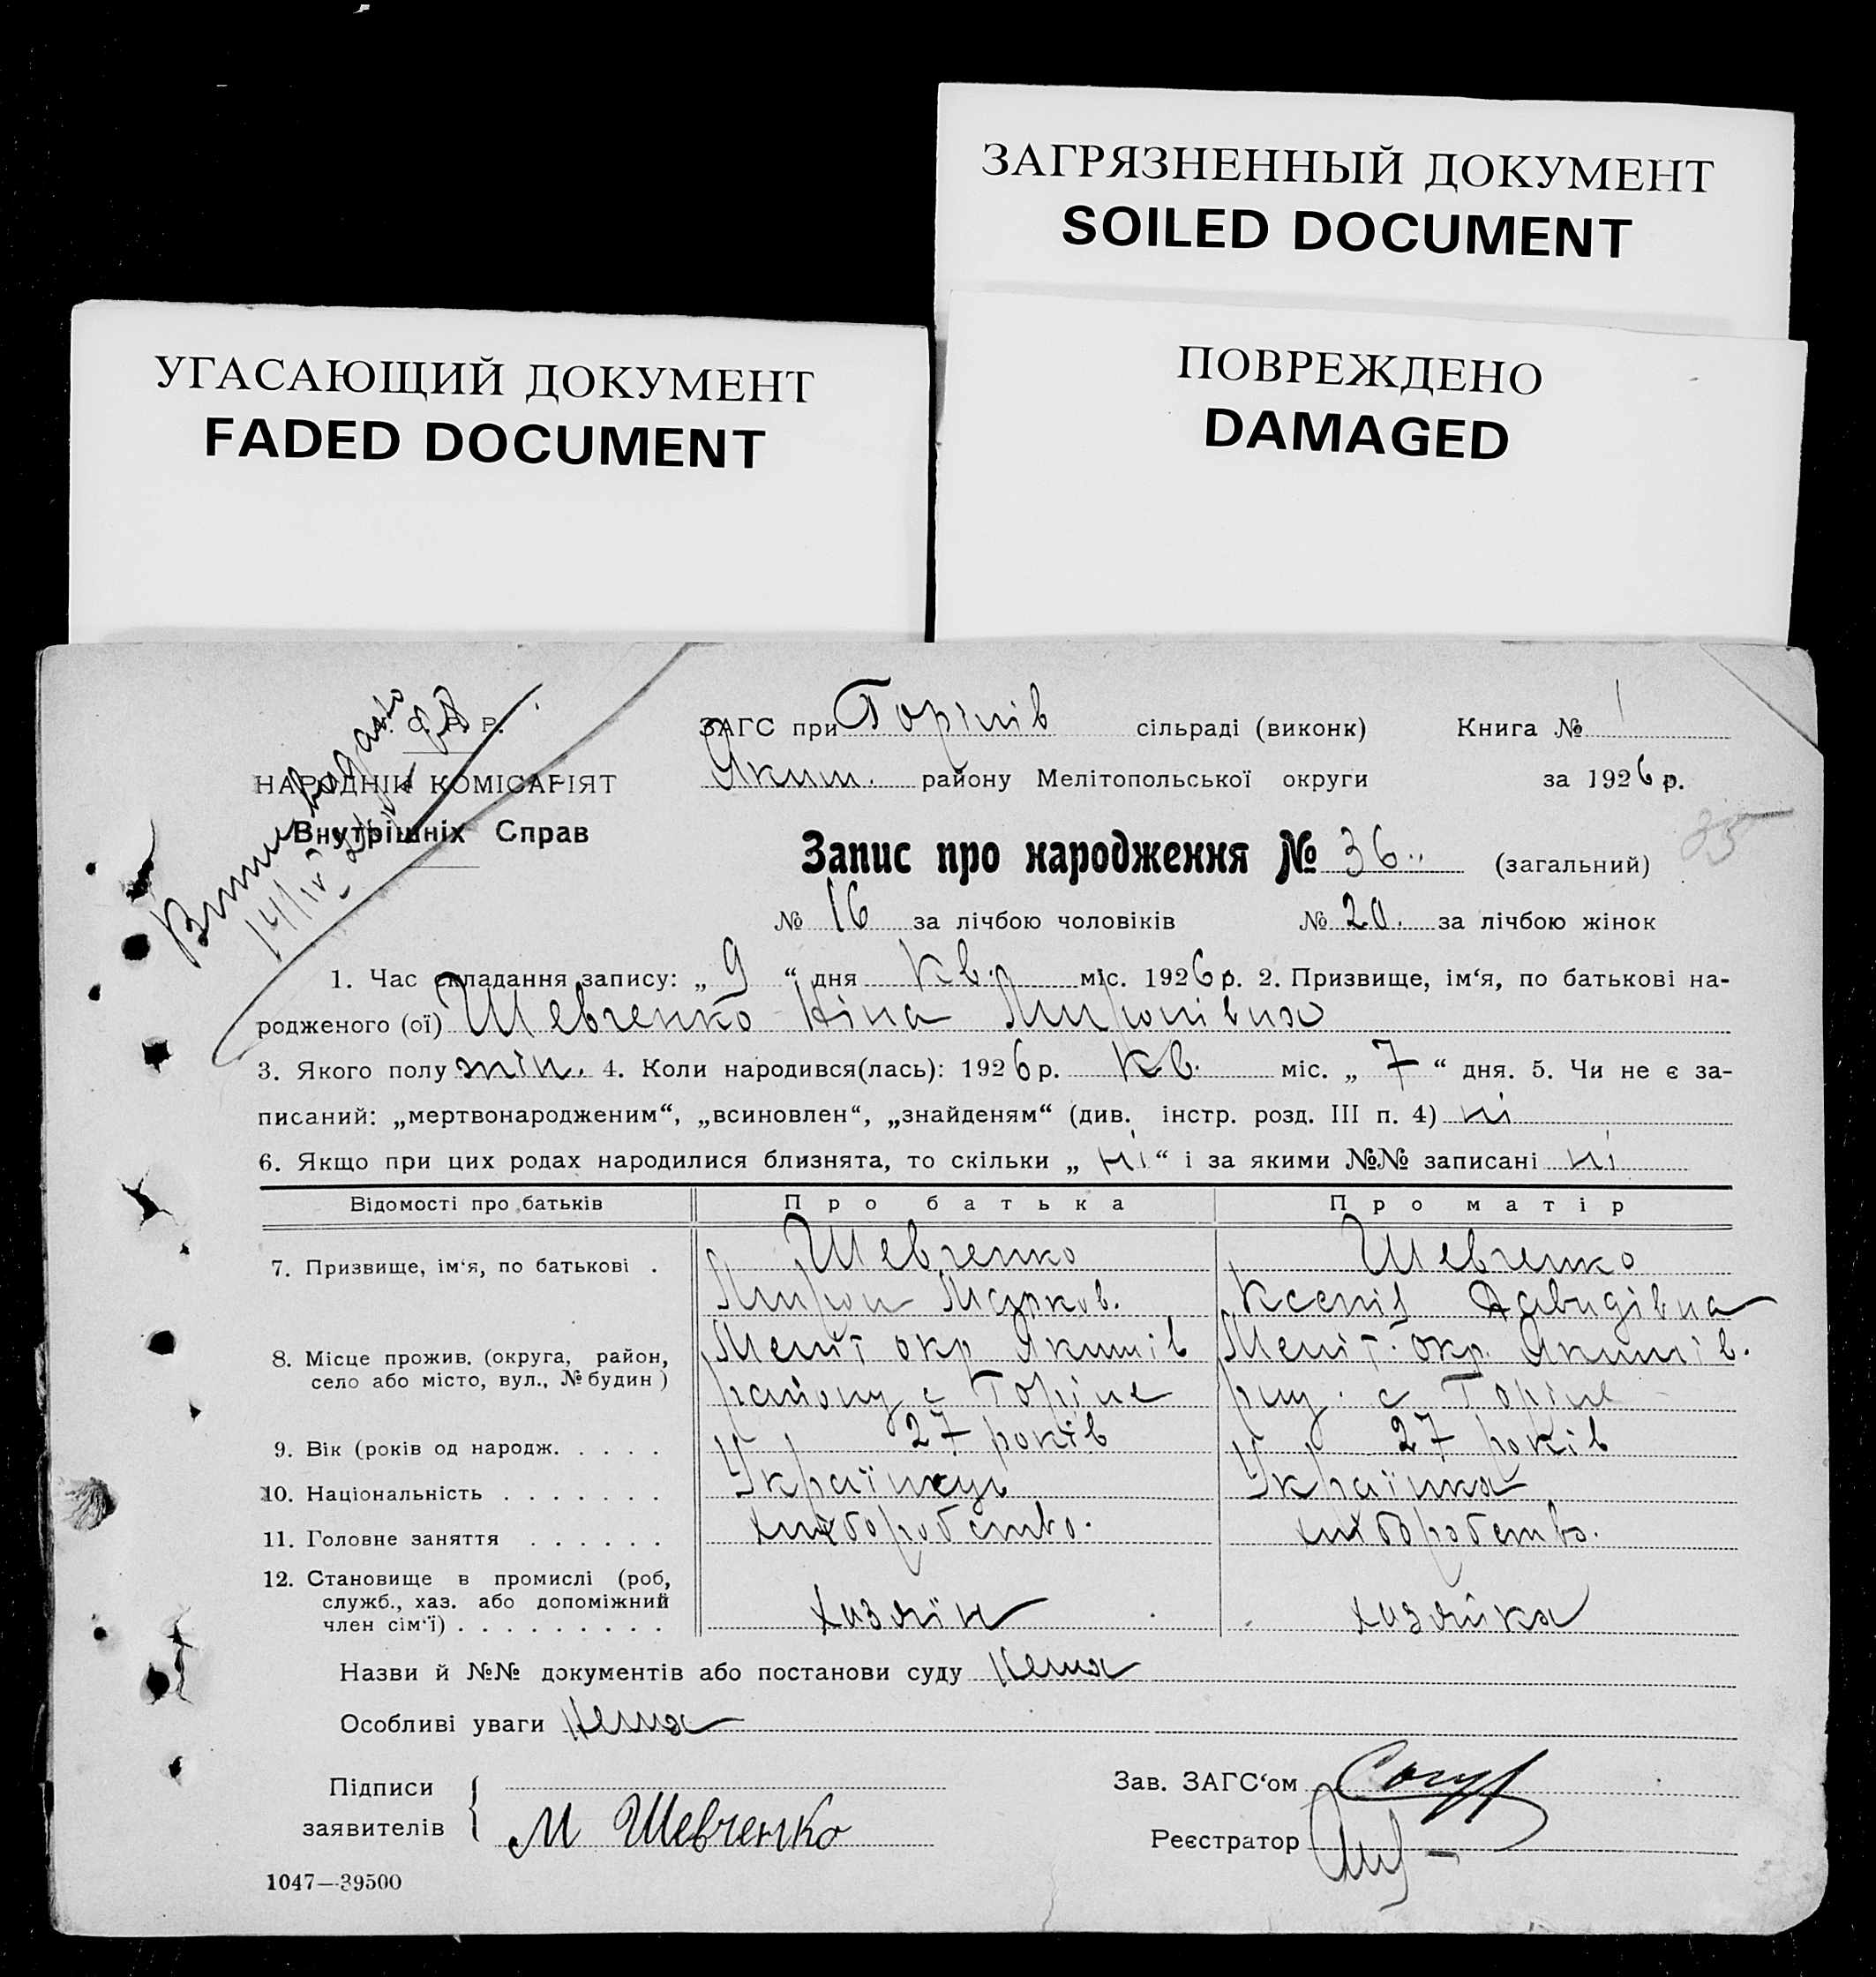 ЗАГРЯЗНЕННЫЙ ДОКУМЕНТ
SOILED DOCUMENT
УГАСАЮЩИЙ ДОКУМЕНТ
FADED DOCUMENT
ПОВРЕЖДЕНО
DAMAGED
С. Р. Р.
НАРОДНІЙ КОМІСАРІЯТ
Внутрішніх Справ
14/IV
ЗАГС при Горінів сільраді (виконк) Книга № 1
Яким. району Мелітопольської округи за 1926 р.
35
Запис про народження № 36 (загальний)
№ 16 за лічбою чоловіків № 20. за лічбою жінок
1. Час складання запису: „ 9 “ дня кв. міс. 1926 р. 2. Призвище, ім‘я, по батькові на-
родженого (ої) Шевченко Ніна Миронівна
3. Якого полу жін. 4. Коли народився(лась): 1926 р. кв. міс. „ 7 “ дня. 5. Чи не є за-
писаний: „мертвонародженим“, „всиновлен“, „знайденям“ (див. інстр. розд. III п. 4) ні
6. Якщо при цих родах народилися близнята, то скільки „ ні “ і за якими №№ записані ні
Відомості про батьків Про батька Про матір
7. Призвище, ім‘я, по батькові . Шевченко Шевченко
Мирон Марков. Ксенія Давидівна
8. Місце прожив. (округа, район, село або місто, вул., № будин) Меліт окр Якимів Меліт. окр. Якимів.
району с Горіне с Горіне
9. Вік (років од народж. . . . . 27 років 27 років
10. Національність . . . . . . . Українець Українка
11. Головне заняття . . . . . . хліборобство. хліборобство.
12. Становище в промислі (роб, служб., хаз. або допоміжний член сім‘ї) . . . . . . . . . хазяїн хазяйка
Назви й №№ документів або постанови суду Нема
Особливі уваги Нема
Підписи
заявителів М Шевченко
Зав. ЗАГС‘ом
Реєстратор
1047—39500